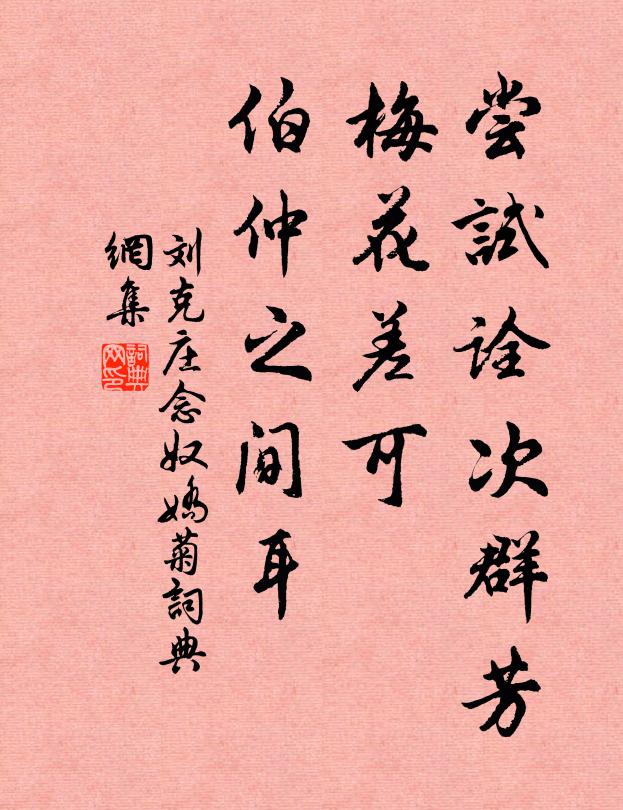 尝試詮次群芳
梅花差可
伯仲之間耳
刘克庄念奴嬌菊詞典
網集
詞典
网印